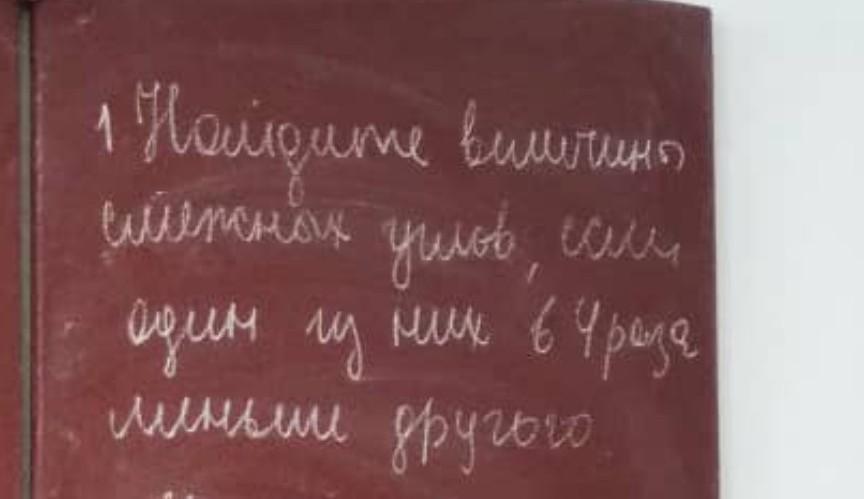 1 Найдите величины
смежных углов, если
один из них в 4 раза
меньше другого